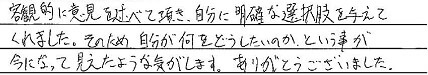 客観的に意見を述べて頂き、自分に明確な選択肢を与えて
くれました。そのため、自分が何をどうしたいのか、という事が
今になって見えたような気がします。ありがとうございました。